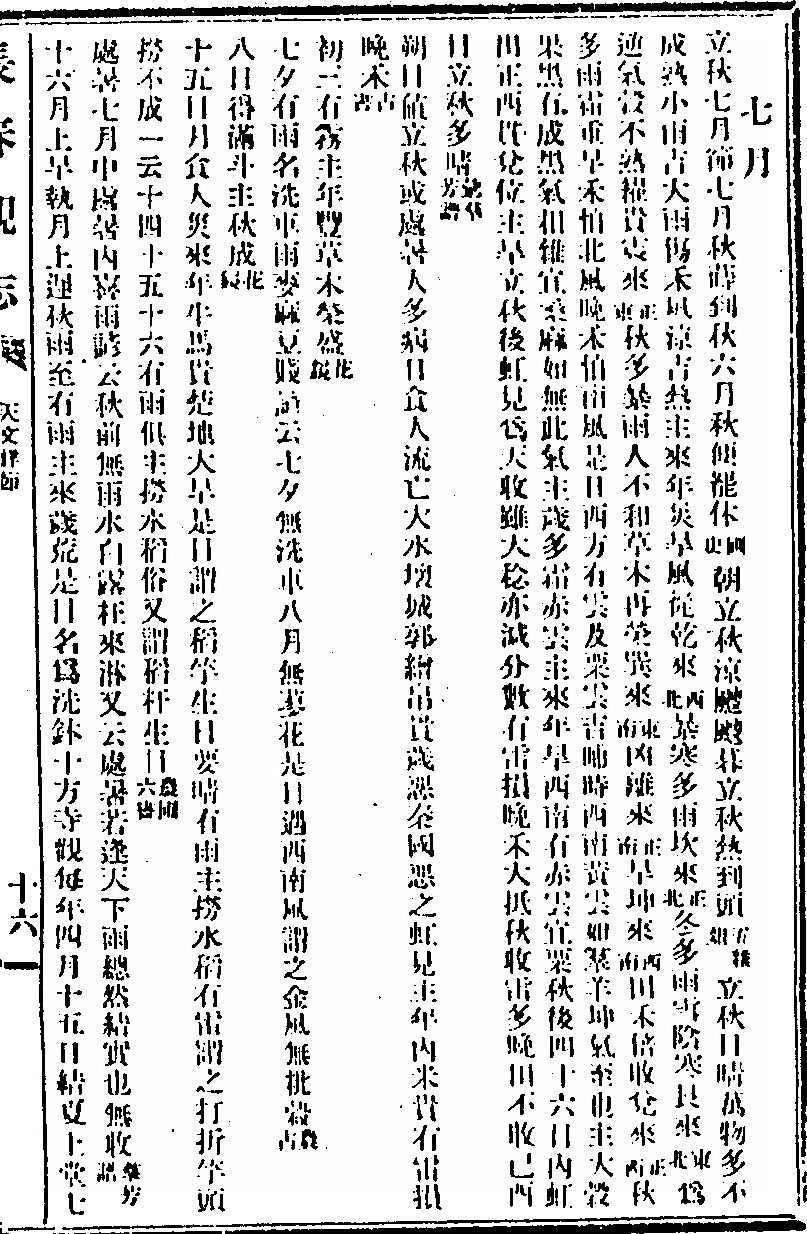 七月
立秋七月節七月秋蒔到秋六月秋便罷休國史朝立秋涼颼颼暮立秋熱到頭五雜組立秋日晴萬物多不
成熟小雨吉大雨傷禾風涼吉熱主來年災旱風從乾來西北暴寒多雨坎來正北冬多雨雪陰寒艮來東北為
逆氣穀不熟糴貴震來正東秋多暴雨人不和草木再榮巽來東南凶離來正南旱坤來西南田禾倍收兌來正西秋
多雨霜重早禾怕北風晚禾怕南風是日西方有雲及粟雲吉晡時西南黃雲如羣羊坤氣至也主大穀
果黑有成黑氣相雜宜桑麻如無此氣主歲多霜赤雲主來年旱西南有赤雲宜粟秋後四十六日內虹
出正西貫兌位主旱立秋後虹見為天收雖大稔亦減分數有雷損晚禾大抵秋收雷多晚田不收己酉
日立秋多晴羣芳譜
朔日値立秋或處暑人多病日食人流亡大水壞城郭繒帛貴歲惡秦國惡之虹見主年內米貴有雷損
晚禾占書
初三有霧主年豐草木榮盛花鏡
七夕有雨名洗車雨麥麻豆賤諺云七夕無洗車八月無蓼花是日遇西南風謂之金風無秕穀農占
八日得滿斗主秋成花鏡
十五日月食人災來年牛馬貴楚地大旱是日謂之稻竿生日要晴有雨主撈水稻有雷謂之打折竿頭
撈不成一云十四十五十六有雨俱主撈水稻俗又謂稻杆生日農圃六書
處暑七月中處暑內喜雨諺云秋前無雨水白露枉來淋又云處暑若逢天下雨總然結實也無收羣芳譜
十六月上早執月上遲秋雨至有雨主來歲荒是日名為洗缽十方寺觀每年四月十五日結夏上堂七
志
天文歲節
十六